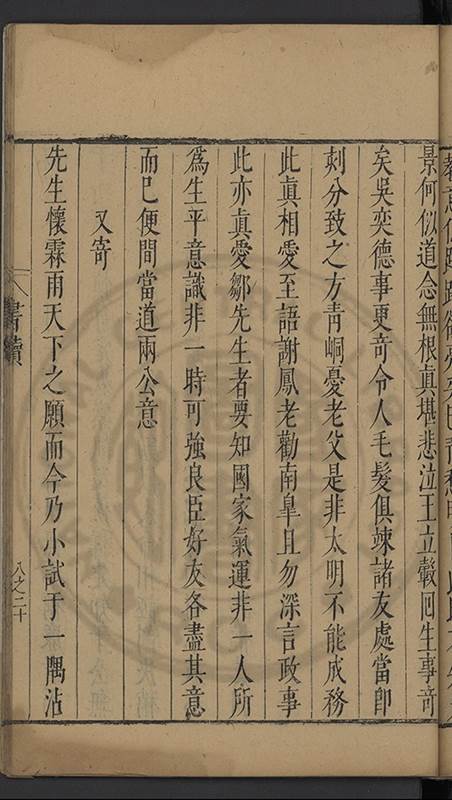 景何似道念無根眞堪悲泣王立轂囘生事奇
矣吳奕德事更奇令人毛髮俱竦諸友處當卽
刻分致之方靑峒憂老父是非太明不能成務
此眞相愛至語謝鳳老勸南臯且勿深言政事
此亦眞愛鄒先生者要知國家氣運非一人所
爲生平意識非一時可強良臣好友各盡其意
而已便間當道兩公意
又寄
先生懷霖雨天下之願而今乃小試于一隅沾
書牘
八之二十